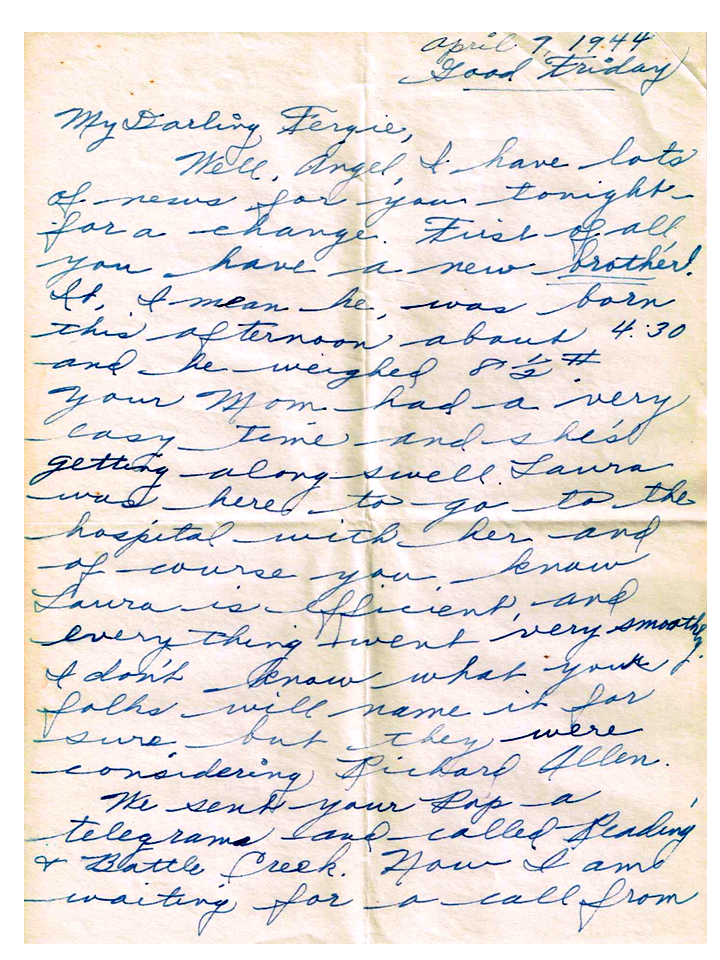 April 7, 1944
Good Friday
My Darling Fergie,
Well, Angel, I have lots
of news for you tonight -
for a change. First of all
you have a new brother!
It, I mean he, was born
this afternoon about 4:30
and he weighed 8 1/2 #
Your Mom had a very
easy time and she's
getting along swell. Laura
was here to go to the
hospital with her and
of course you know
Laura is efficient, and
everything went very smoothly.
I don't know what your
folks will name it for
sure, but they were
considering Richard Allen.
We sent your Pop a
telegram and called Reading
& Battle Creek. Now I am
waiting for a call from